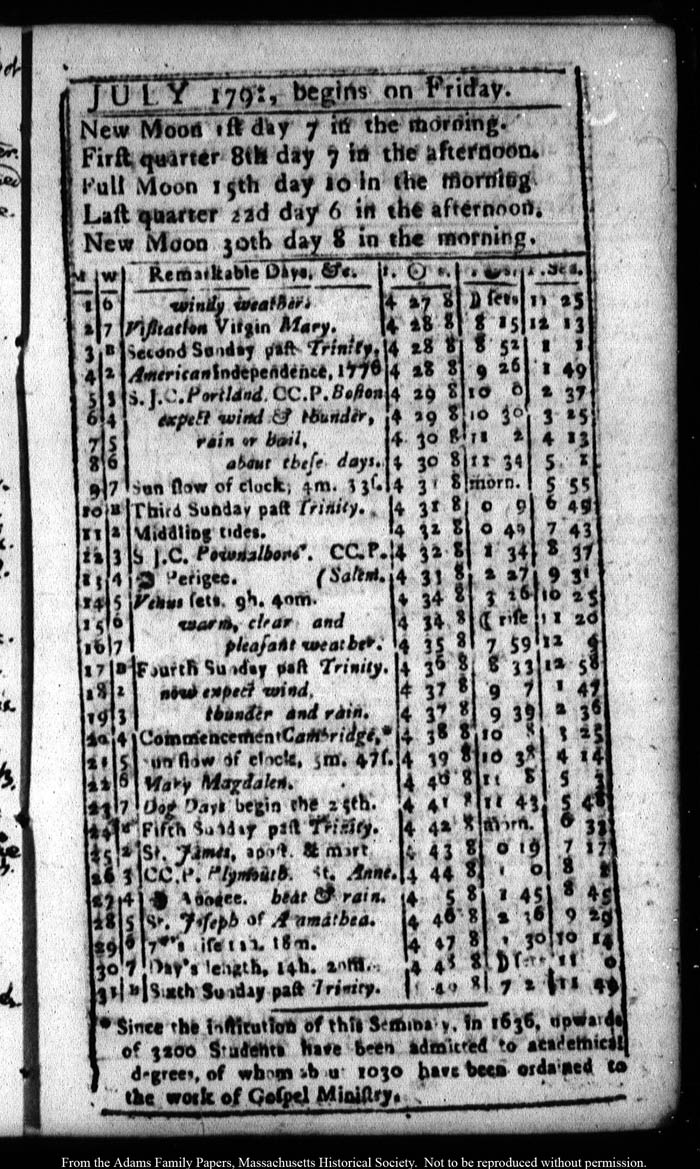 JULY 179 , begins on Friday.
New Moon 1ſt day 7 in the morning.
Firſt quarter 8th day 7 in the afternoon.
Full Moon 15th day 10 in the morning
Laſt quarter 22d day 6 in the afternoon.
New Moon 30th day 8 in the morning.
M W Remarkable Days, &c. r. ☉ s. Sea.
1 6 windy weather. 4 27 8 D ſets 11 25
2 7 Viſitation Virgin Mary. 4 28 8 8 15 12 13
3 B Second Sunday paſt Trinity. 4 28 8 8 52 1 1
4 2 American Independence, 1776 4 28 8 9 26 1 49
5 3 S. J. C. Portland, CC. P. Boſton 4 29 8 10 0 2 37
6 4 expect wind & thunder, 4 29 8 10 30 3 25
7 5 rain or hail, 4 30 8 11 2 4 13
8 6 about theſe days. 4 30 8 11 34 5
9 7 Sun ſlow of clock, 4m. 33ſ. 4 31 8 morn. 5 55
10 B Third Sunday paſt Trinity. 4 31 8 0 9 6 49
11 2 Middling tides. 4 32 8 0 49 7 43
12 3 S J. C. Pownalboro'. CC. P. 4 32 8 1 34 8 37
13 4 Perigee. (Salem. 4 33 8 2 27 9 31
14 5 Venus ſets. 9h. 40m. 4 34 8 3 26 10 25
15 6 warm, clear and 4 34 8 ☾ riſe 11 20
16 7 pleaſant weather. 4 35 8 7 59 12
17 B Fourth Sunday paſt Trinity. 4 36 8 8 33 12 58
18 2 now expect wind, 4 37 8 9 7 1 47
19 3 thunder and rain. 4 37 8 9 39 2 36
20 4 Commencement Cambridge,* 4 38 8 10 8 3 25
21 5 Sun ſlow of clock, 5m. 47ſ. 4 39 8 10 38 4 14
22 6 Mary Magdalen. 4 40 8 11 8 5
23 7 Dog Days begin the 25th. 4 41 8 11 43 5
24 B Fifth Sunday paſt Trinity. 4 42 8 morn. 6 33
25 2 St. James, apoſt. & mart 4 43 8 0 19 7 17
26 3 CC. P. Plymouth. St. Anne. 4 44 8 1 0 8
27 4 Apogee. heat & rain. 4 5 8 1 45 8 45
28 5 St. Joſeph of A amathea. 4 46 8 2 36 9 29
29 6 7*'s riſe 11h. 18m. 4 47 8 30 10 14
30 7 Day's length, 14h. 20m. 4 48 8 D ſets 11 0
31 B Sixth Sunday paſt Trinity. 49 8 7 2 11 49
* Since the inſtitution of this Seminary, in 1636, upwards
of 3200 Students have been admitted to academical
degrees, of whom about 1030 have been ordained to
the work of Goſpel Miniſtry.
From the Adams Family Papers, Massachusetts Historical Society. Not to be reproduced without permission.